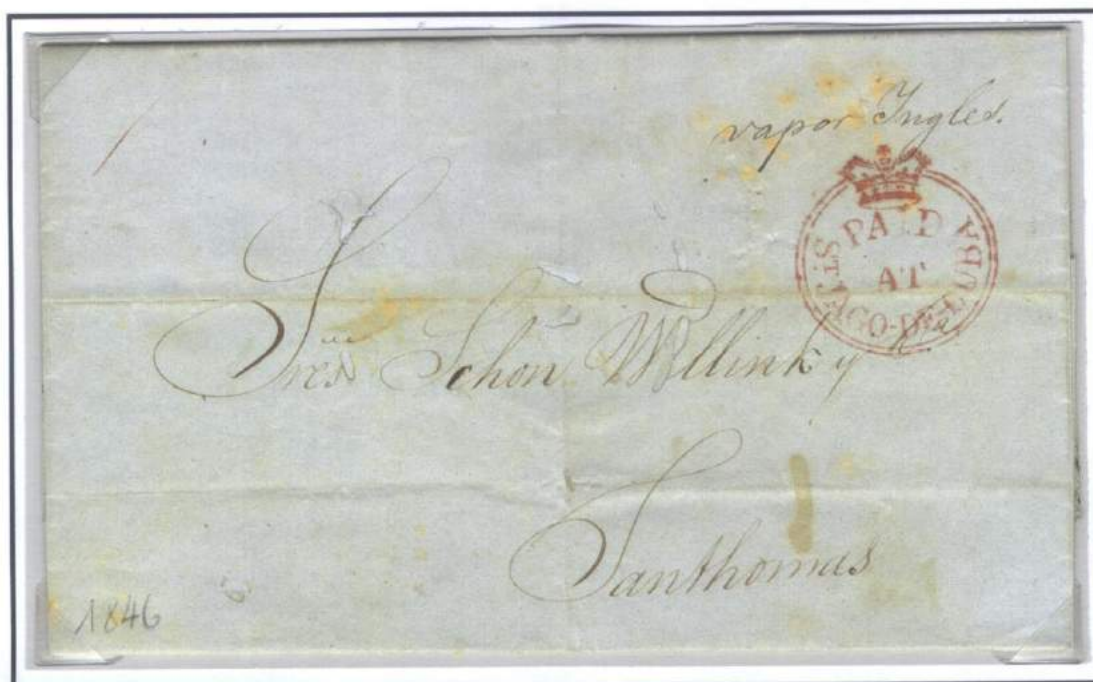 vapor Ingles.
PAID
AT
ST JAGO-DE-CUBA
Sres Schön Willink y Ca
Santhomas
1846